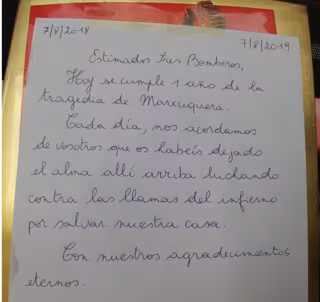 7/8/2018
7/8/2019
Estimados Sres Bomberos,
Hoy se cumple 1 año de la
tragedia de Marxuquera.
Cada día, nos acordamos
de vosotros que os habéis dejado
el alma allí arriba luchando
contra las llamas del infierno
por salvar nuestra casa.
Con nuestros agradecimientos
eternos.